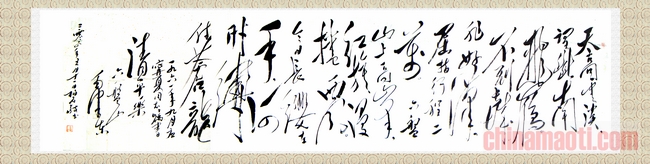 天高云淡
望断南
飞雁
不到长城
非好汉
屈指行程二
万 六盘
山上高峰
红旗漫
卷西风
今日长缨在
手 何
时缚
住苍龙
一九六一年九月应
宁夏同志嘱书
清平乐
六盘山
毛泽东
chinamaoti.com